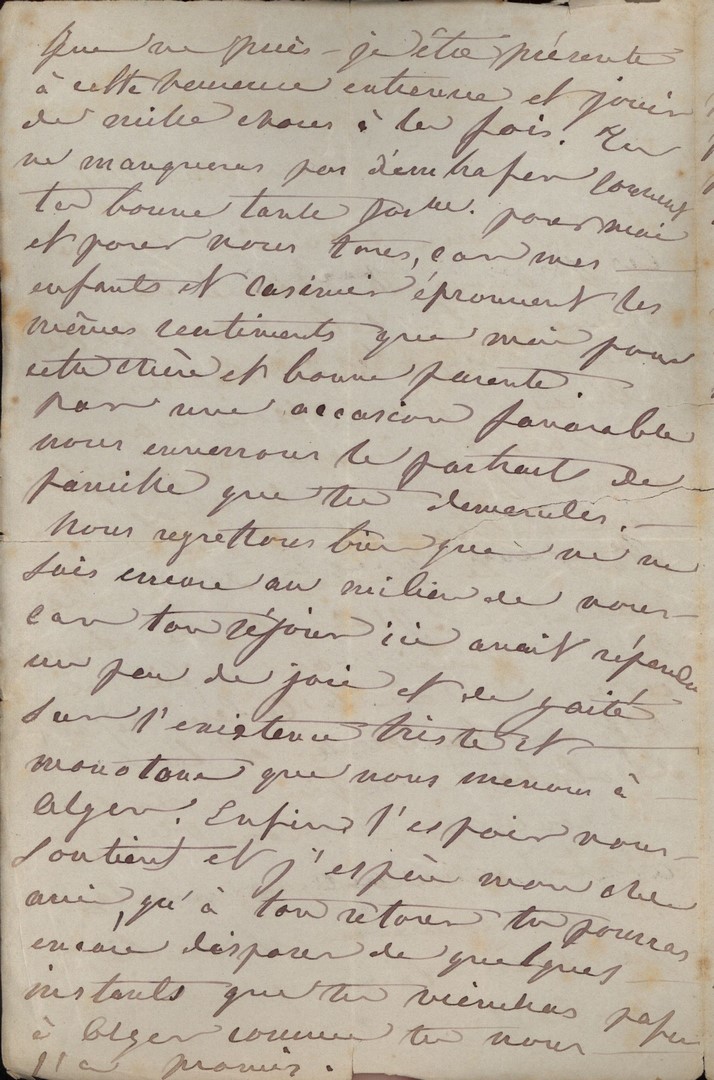 Que ne puis-je être présente
à cette heureuse entrevue et jouir
de mille choses à la fois. Tu
ne manqueras pas d'embrasser souvent
ta bonne tante pour moi
et pour nous tous, car mes
enfants et Casimir éprouvent les
mêmes sentiments que moi pour
cette chère et bonne parente
par une occasion favorable
nous enverrons le portrait de
famille que tu demandes.
Nous regrettons bien que ne
sois encore au milieu de nous
car ton séjour ici avait répandu
un peu de joie et de gaité
sur l'existence triste et
monotone que nous menons à
Alger. Enfin l'espoir nous
soutient et j'espère mon cher
ami, qu'à ton retour tu pourras
encore disposer de quelques
instants que tu viendras passer
à Alger comme tu nous
l'a promis.